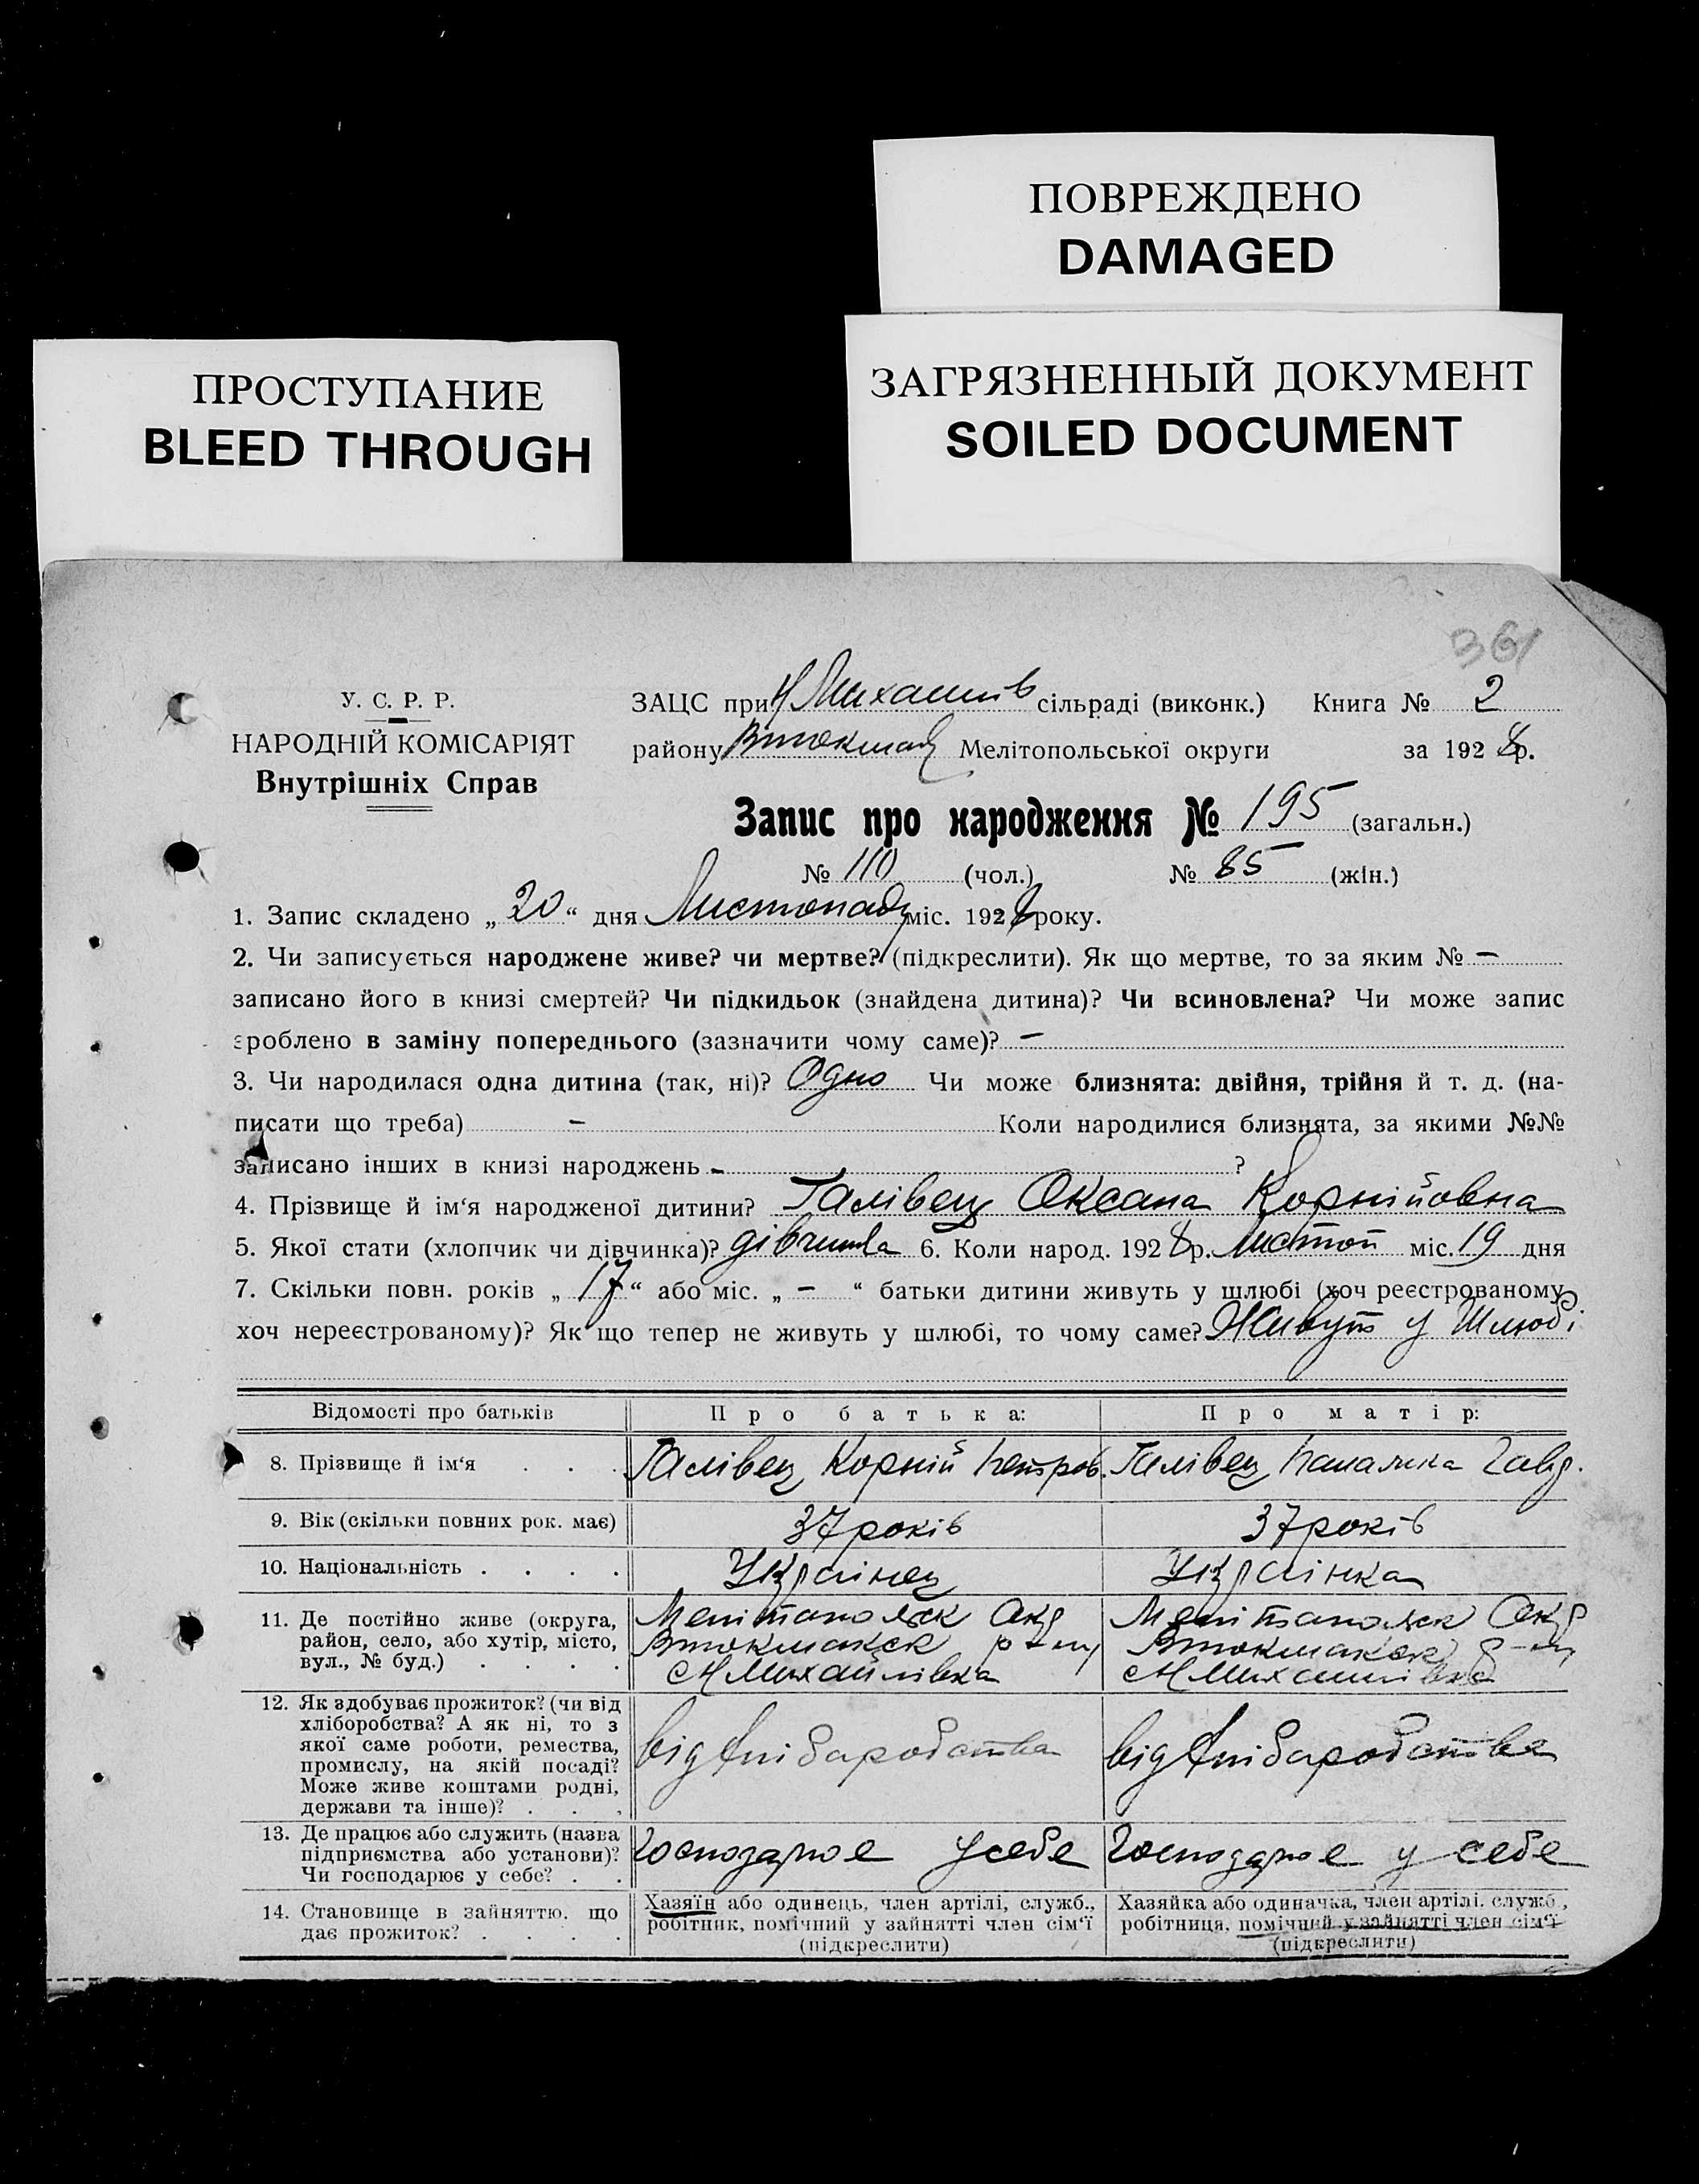 ПОВРЕЖДЕНО
DAMAGED
ПРОСТУПАНИЕ
BLEED THROUGH
ЗАГРЯЗНЕННЫЙ ДОКУМЕНТ
SOILED DOCUMENT
361
У. С. Р. Р.
НАРОДНІЙ КОМІСАРІЯТ
Внутрішніх Справ
ЗАЦС при Н Михайлів сільраді (виконк.) Книга № 2
району Втокмац Мелітопольської округи за 1928 р.
Запис про народження № 195 (загальн.)
№ 110 (чол.) № 85 (жін.)
1. Запис складено „20“ дня Листопаду міс. 1928 року.
2. Чи записується народжене живе? чи мертве? (підкреслити). Як що мертве, то за яким № —
записано його в книзі смертей? Чи підкидьок (знайдена дитина)? Чи всиновлена? Чи може запис
зроблено в заміну попереднього (зазначити чому саме)? —
3. Чи народилася одна дитина (так, ні)? Одно Чи може близнята: двійня, трійня й т. д. (на-
писати що треба) — Коли народилися близнята, за якими №№
записано інших в книзі народжень — ?
4. Прізвище й ім‘я народженої дитини? Галівец Оксана Корнійовна
5. Якої стати (хлопчик чи дівчинка)? дівчинка 6. Коли народ. 1928 р. Листоп міс. 19 дня
7. Скільки повн. років „17“ або міс. „—“ батьки дитини живуть у шлюбі (хоч реєстрованому
хоч нереєстрованому)? Як що тепер не живуть у шлюбі, то чому саме? Живуть у Шлюбі
Відомості про батьків Про батька: Про матір:
8. Прізвище й ім‘я Галівец Корній Петров. Галівец Гавр.
9. Вік (скільки повних рок. має) 37 років 37 років
10. Національність Українец Українка
11. Де постійно живе (округа,
район, село, або хутір, місто,
вул., № буд.)
Мелітопольск Окр
Втокмакск р-ну
с Н Михайлівка
Мелітопольск Окр
Втокмакск р-ну
с Н Михайлівка
12. Як здобуває прожиток? (чи від
хліборобства? А як ні, то з
якої саме роботи, ремества,
промислу, на якій посаді?
Може живе коштами родні,
держави та інше)?
від хліборобства
від хліборобства
13. Де працює або служить (назва
підприємства або установи)?
Чи господарює у себе?
Господарює у себе
Господарює у себе
14. Становище в зайняттю, що
дає прожиток?
Хазяїн або одинець, член артілі, служб.,
робітник, помічний у зайнятті член сім‘ї
(підкреслити)
Хазяйка або одиначка, член артілі, служб.,
робітниця, помічний у зайнятті член сім‘ї
(підкреслити)